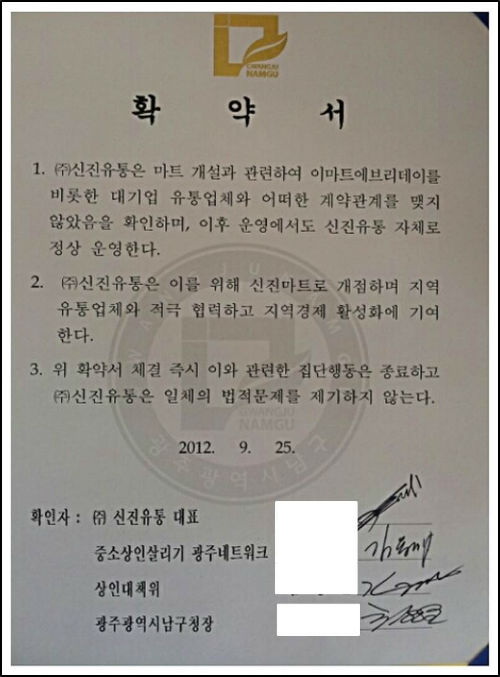 GWANGJU
NAMGU
확 약 서
1. ㈜신진유통은 마트 개설과 관련하여 이마트에브리데이를
비롯한 대기업 유통업체와 어떠한 계약관계를 맺지
않았음을 확인하며, 이후 운영에서도 신진유통 자체로
정상 운영한다.
2. ㈜신진유통은 이를 위해 신진마트로 개점하며 지역
유통업체와 적극 협력하고 지역경제 활성화에 기여
한다.
3. 위 확약서 체결 즉시 이와 관련한 집단행동은 종료하고
㈜신진유통은 일체의 법적문제를 제기하지 않는다.
GWANGJU
NAMGU
광주광역시남구
2012. 9. 25.
확인자 : ㈜ 신진유통 대표
중소상인살리기 광주네트워크
상인대책위
광주광역시남구청장